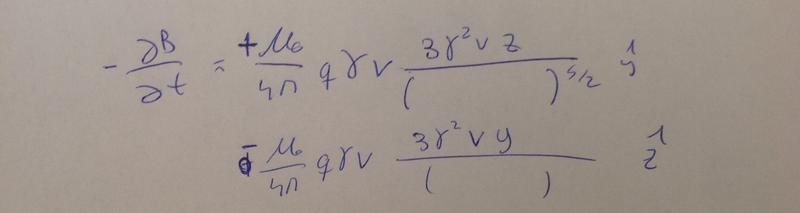 - ∂B/∂t = + μ₀/4π qγv 3γ²vz/( )^5/2 ŷ
- μ₀/4π qγv 3γ²vy/( ) ẑ